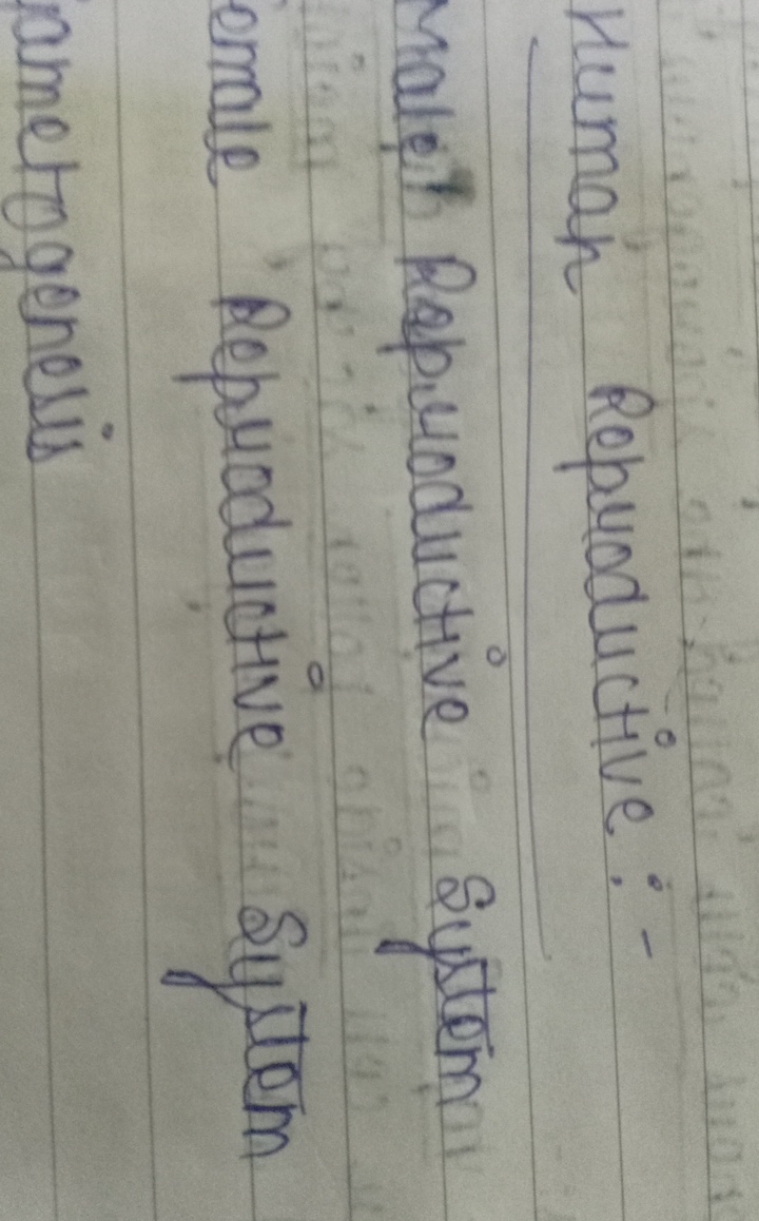 Human Reproductive :-
Male Reproductive System
emale Reproductive System
ametogenesis